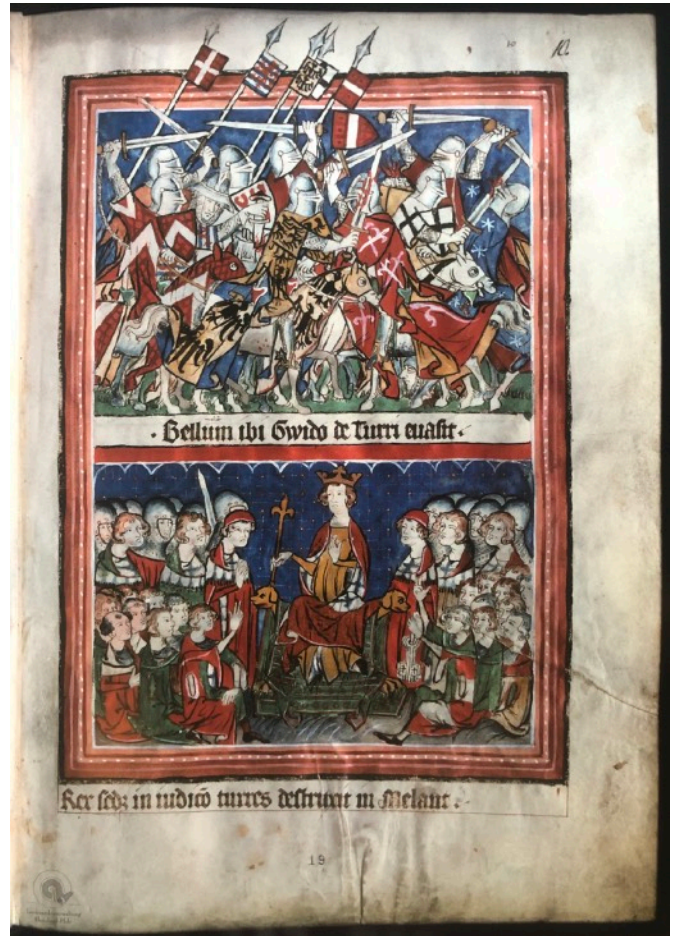 10
10.
· Bellum ibi Gwido de Turri euasit ·
Rex sedꝫ in iudicō turres destruxit in Melant ·
19